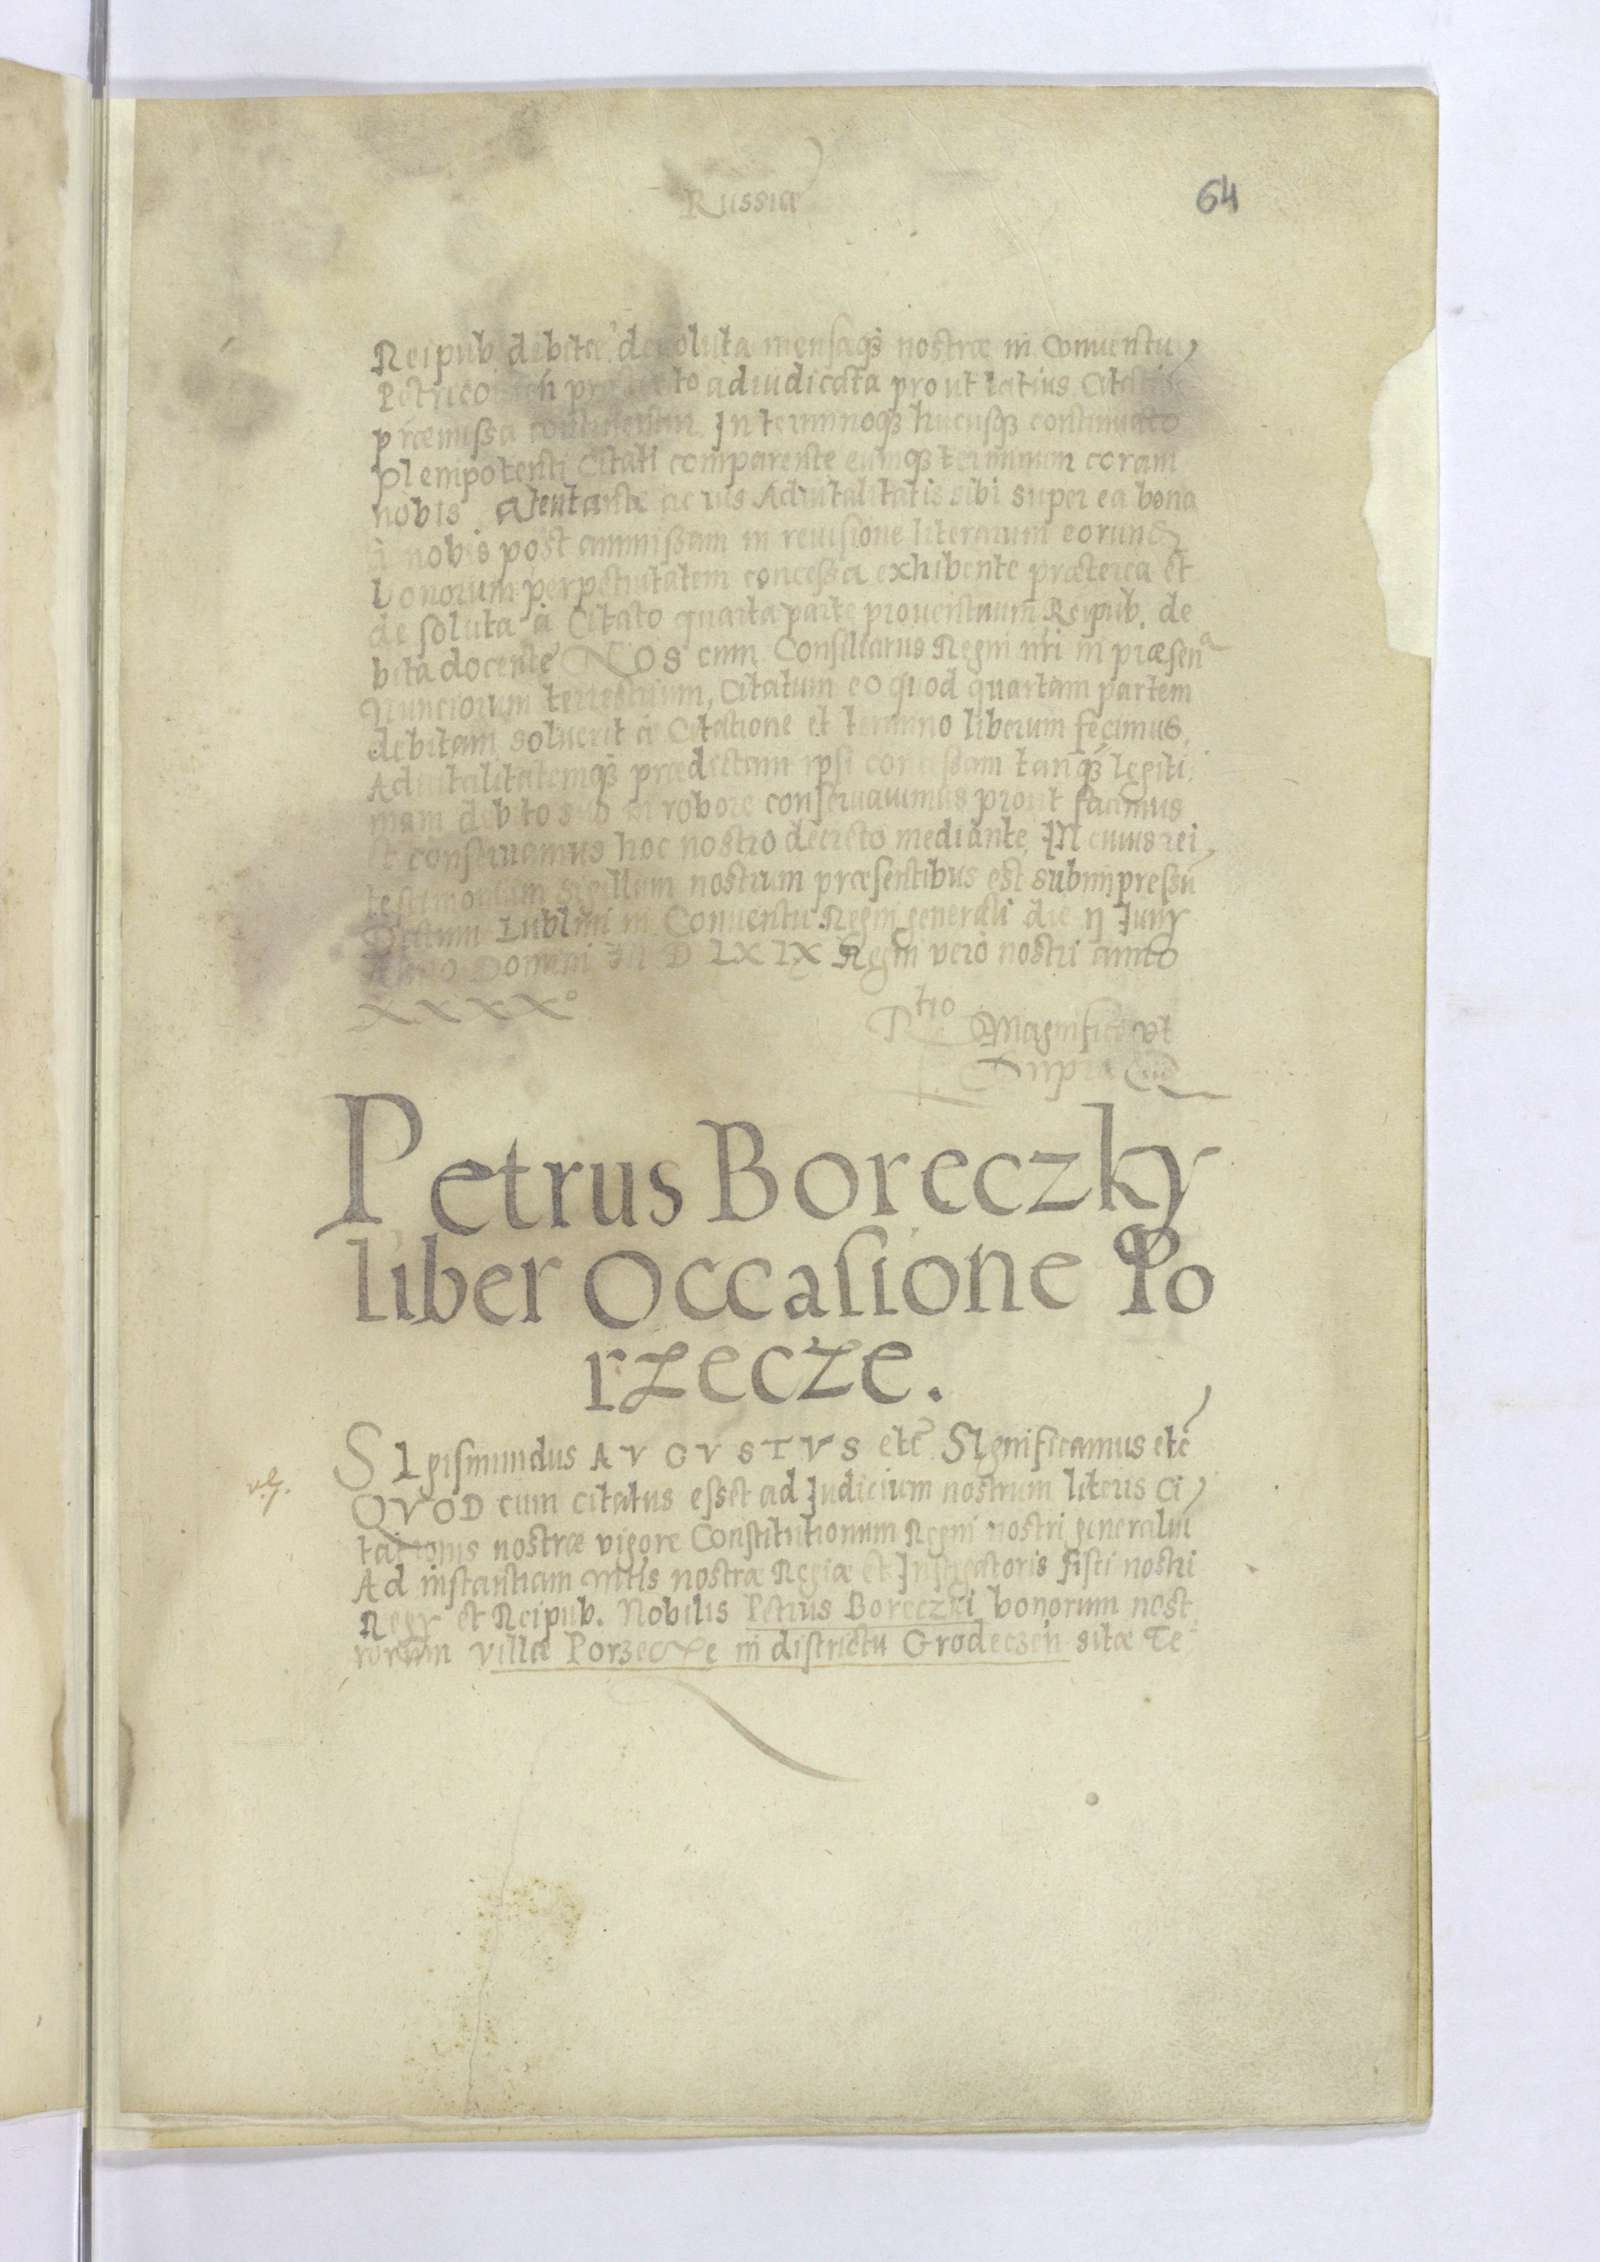 Russia
64
Reipub debitæ deuoluta mensæq3 nostræ in Conuentu
Petricouień præterito adiudicata prout latius Citatio
præmissa continebat In terminoq3 hucusq3 continuato
Plenipotenti Citati comparente eumq3 terminum coram
nobis Atentante ac ius Aduitalitatis sibi super ea bona
à nobis post ammissam in reuisione literarum eorund
bonorum perpetuitatem concessa exhibente præterea et
de soluta à Citato quarta parte prouentuum Reipub. de
bita docente Nos cum Consiliarijs Regni nri in præsena
Nunciorum terrestrium, Citatum eo quod quartam partem
debitam soluerit à Citatione et termino liberum fecimus.
Aduitalitatemq3 prædictam ipsi concessam tanq3 legiti
mam debito suo in robore conseruauimus prout facimus
et conseruamus hoc nostro decreto mediante, In cuius rei
testimonium sigillum nostrum præsentibus est subimpressū
Datum Lublini in Conuentu Regni generali die Junij
Anno Domini M D LX IX Regni vero nostri anno
XXXX°
Rtio Magnifici vt
Supra
Petrus Boreczky
liber Occasione Po
rzecze.
SIgismundus AVGVSTVS etc SIgnificamus etc
QVOD cum citatus esset ad Judicium nostrum literis Ci
tationis nostræ vigore Constitutionum Regni nostri generaliū
Ad instantiam Mtis nostræ Regiæ et Instigatoris fisci nostri
Regij et Reipub. Nobilis Petrus Boreczki bonorum nost
rorum villæ Porzecze in districtu Grodeczeń sitæ Te